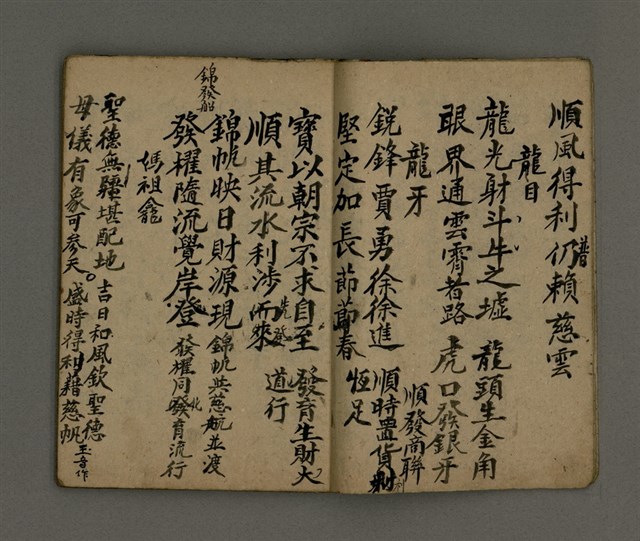 順風得利仍賴慈雲
普
龍目
龍光射斗牛之墟 龍頭生金角
眼界通雲霄者路 虎口發銀牙
龍牙 順發商聯
銳鋒賈勇徐徐進 順時置貨
堅定加長節節春 恆足
寶以朝宗不求自至 發育生財大
順其流水利涉而來 道行
先登
錦發船
錦帆映日財源現 錦帆共慈航並渡
發櫂隨流覺岸登 發櫂同發育流行
媽祖龕
聖德無疆堪配地 吉日和風欽聖德
母儀有象可參天。盛時得利藉慈帆 玉音作